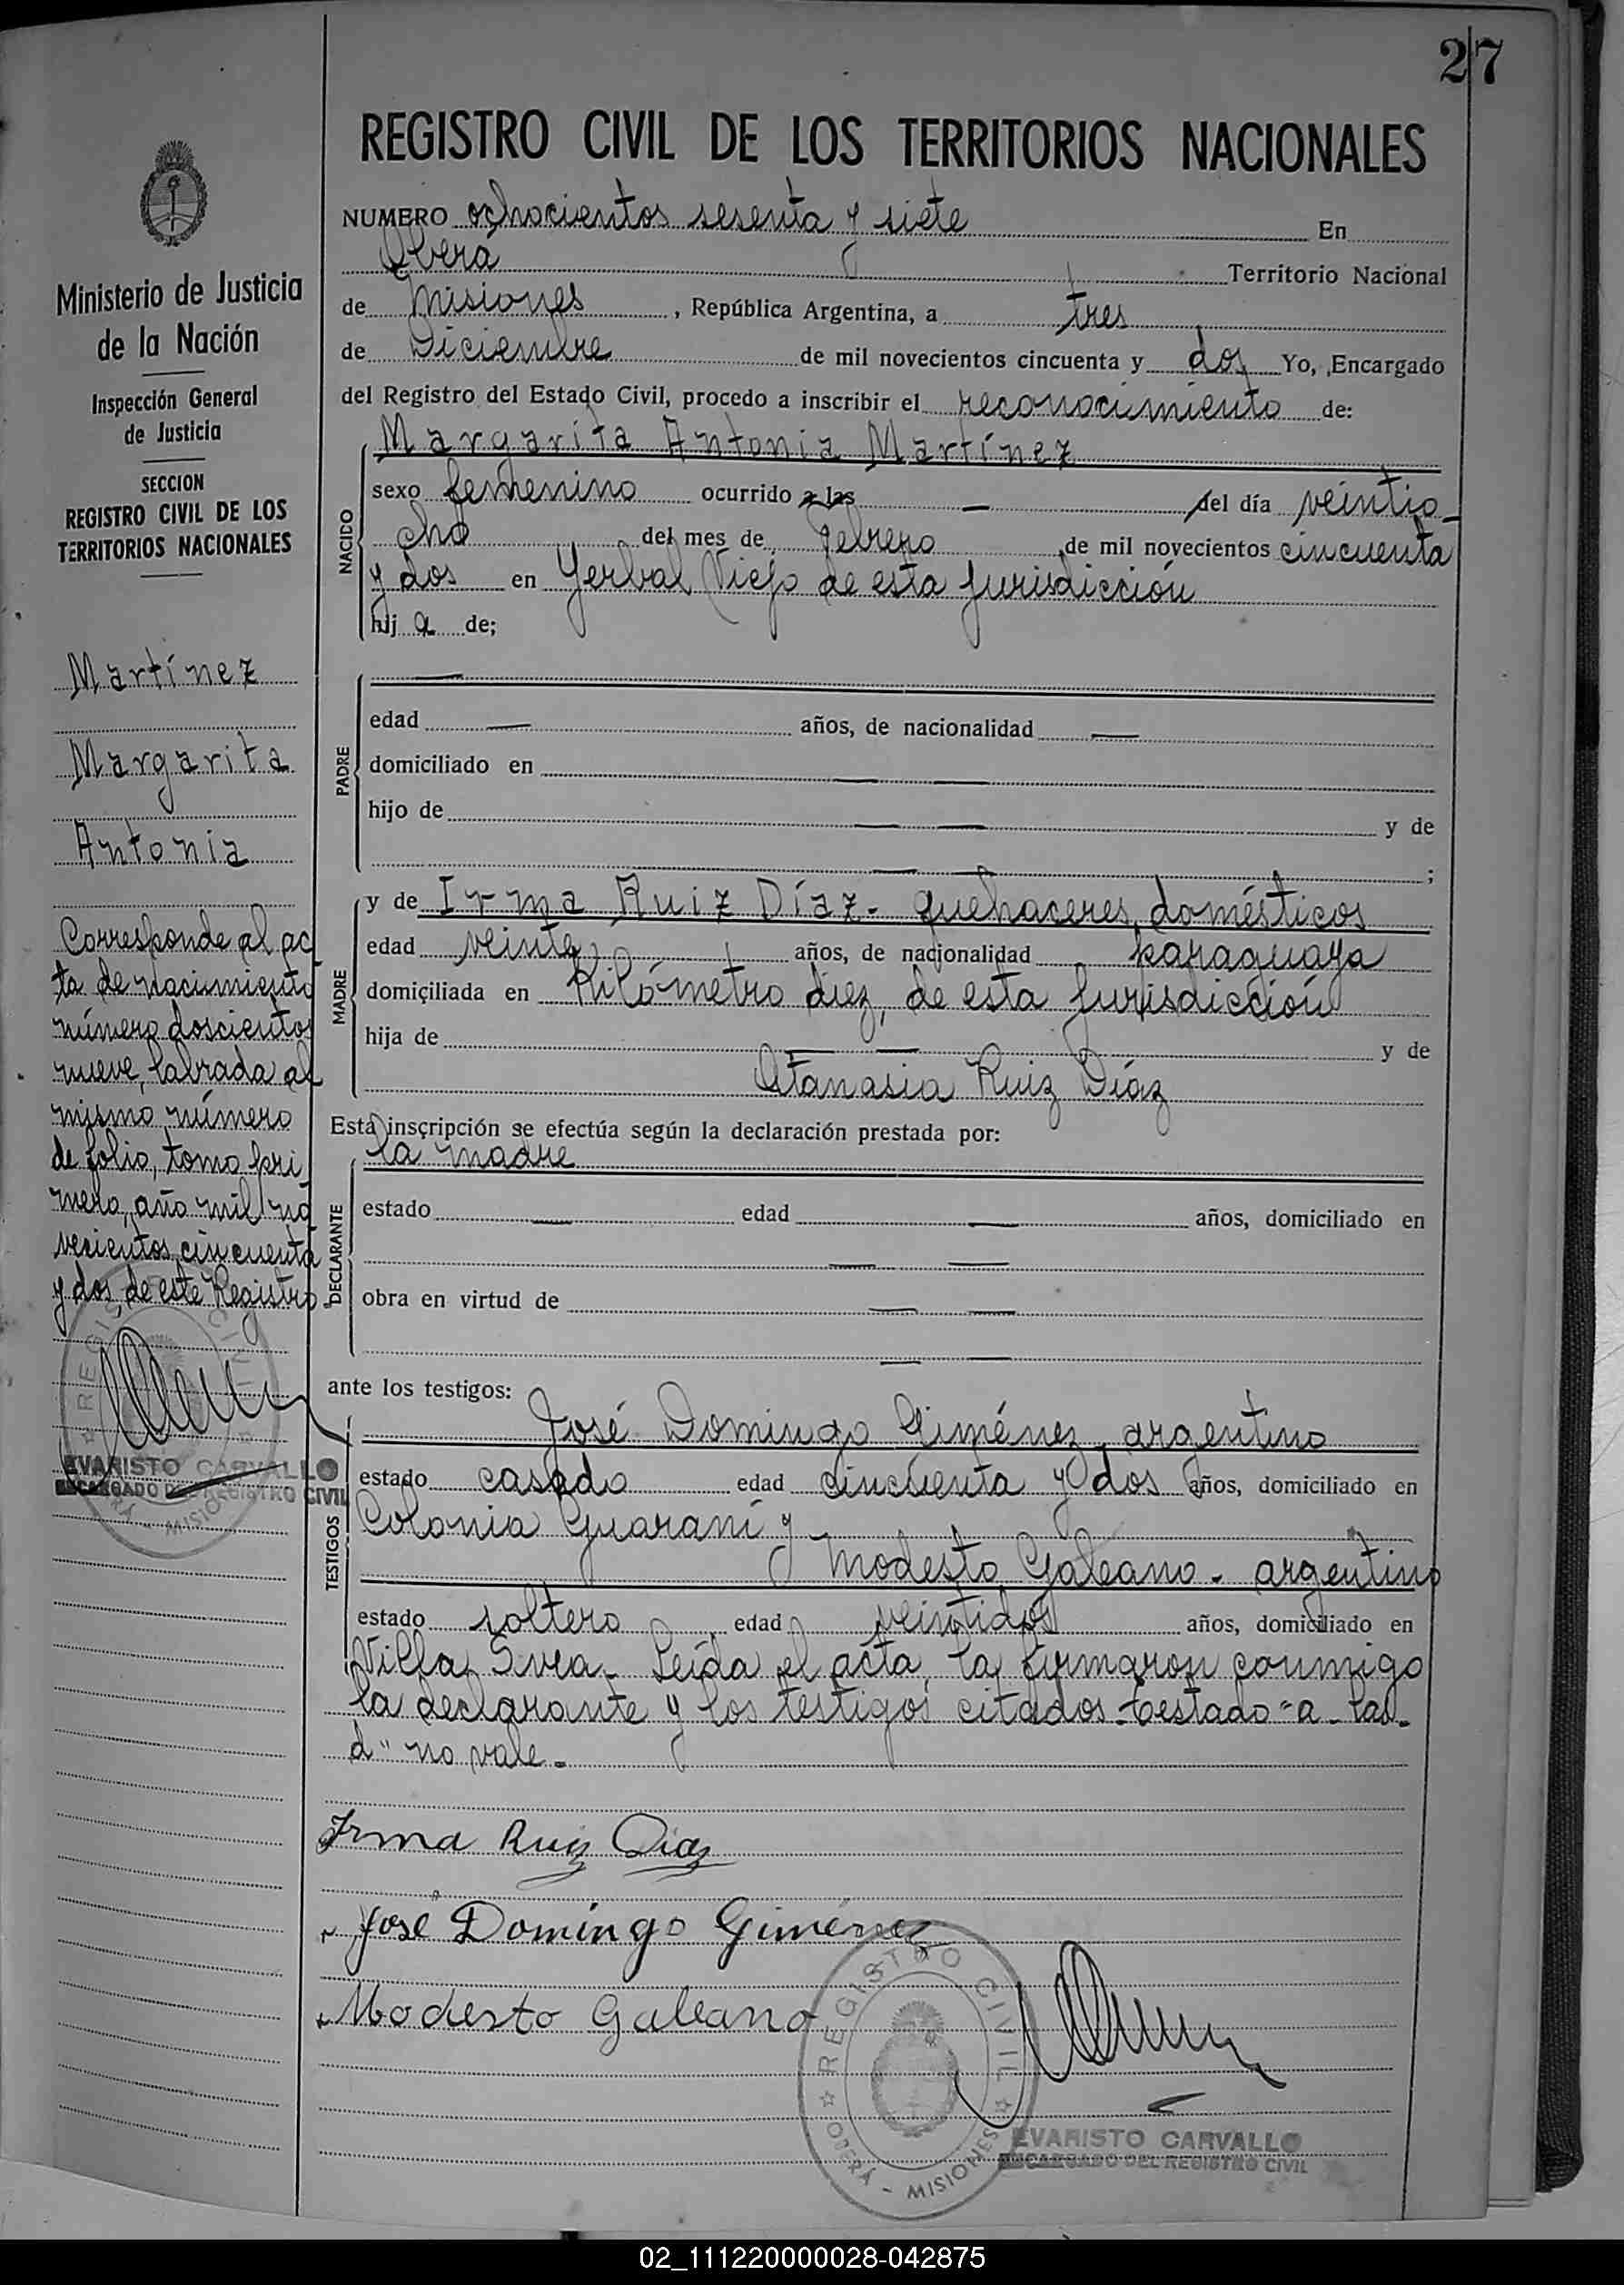 27
REGISTRO CIVIL DE LOS TERRITORIOS NACIONALES
NUMERO ochocientos sesenta y siete En
Oberá Territorio Nacional
de Misiones, República Argentina, a tres
de Diciembre de mil novecientos cincuenta y dos Yo, Encargado
del Registro del Estado Civil, procedo a inscribir el reconocimiento de:
NACIDO
Margarita Antonia Martínez
sexo femenino ocurrido a las — del día veintio-
cho del mes de febrero de mil novecientos cincuenta
y dos en Yerbal Viejo de esta jurisdicción
hij a de;
PADRE
—
edad — años, de nacionalidad —
domiciliado en — —
hijo de — — y de
— — ;
MADRE
y de Irma Ruiz Díaz - quehaceres domésticos
edad veinte años, de nacionalidad paraguaya
domiciliada en Kilómetro diez, de esta jurisdicción
hija de — — y de
Atanasia Ruiz Díaz
Esta inscripción se efectúa según la declaración prestada por:
DECLARANTE
la madre
estado — edad — años, domiciliado en
— —
obra en virtud de — —
— —
ante los testigos:
TESTIGOS
José Domingo Giménez, argentino
estado casado edad cincuenta y dos años, domiciliado en
Colonia Guaraní y
Modesto Galeano - argentino
estado soltero edad veintidos años, domiciliado en
Villa Svea - Leída el acta, la firmaron conmigo
la declarante y los testigos citados - testado = a - las -
d" no vale.-
Irma Ruiz Diaz
José Domingo Giménez
Modesto Galeano
REGISTRO CIVIL
OBERÁ - MISIONES
EVARISTO CARVALLO
ENCARGADO DEL REGISTRO CIVIL
Ministerio de Justicia
de la Nación
Inspección General
de Justicia
SECCION
REGISTRO CIVIL DE LOS
TERRITORIOS NACIONALES
Martínez
Margarita
Antonia
Corresponde al ac
ta de nacimiento
número doscientos
nueve, labrada al
mismo número
de folio, tomo pri
mero, año mil no
vecientos cincuenta
y dos, de este Registro.-
REGISTRO CIVIL
OBERÁ - MISIONES
EVARISTO CARVALLO
ENCARGADO DEL REGISTRO CIVIL
02_111220000028-042875